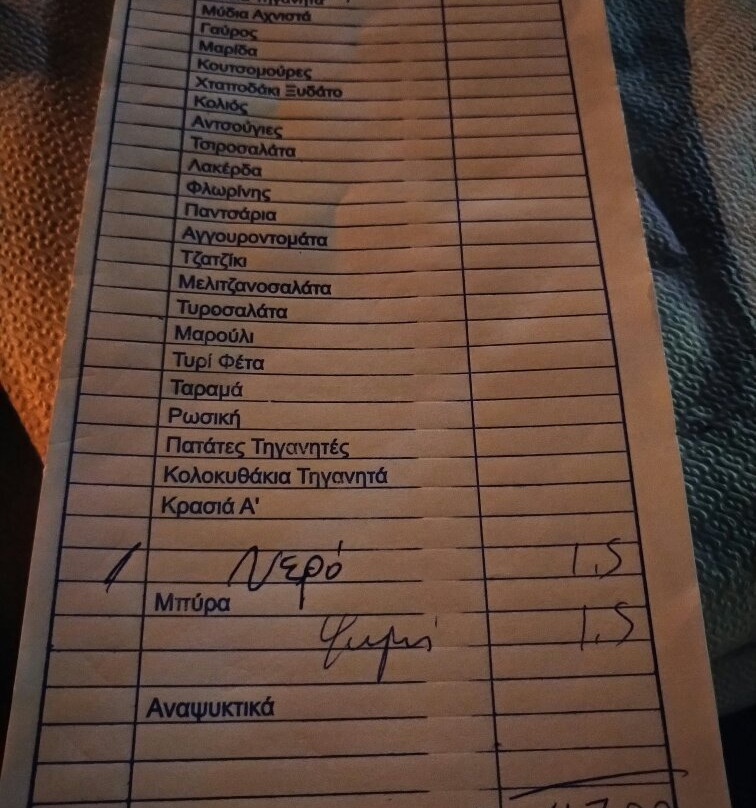 Μύδια Αχνιστά
Γαύρος
Μαρίδα
Κουτσομούρες
Χταποδάκι Ξυδάτο
Κολιός
Αντσούγιες
Τσιροσαλάτα
Λακέρδα
Φλωρίνης
Παντσάρια
Αγγουροντομάτα
Τζατζίκι
Μελιτζανοσαλάτα
Τυροσαλάτα
Μαρούλι
Τυρί Φέτα
Ταραμά
Ρωσική
Πατάτες Τηγανητές
Κολοκυθάκια Τηγανητά
Κρασιά Α'
1 Νερό 1,5
Μπύρα
Ψωμί 1,5
Αναψυκτικά